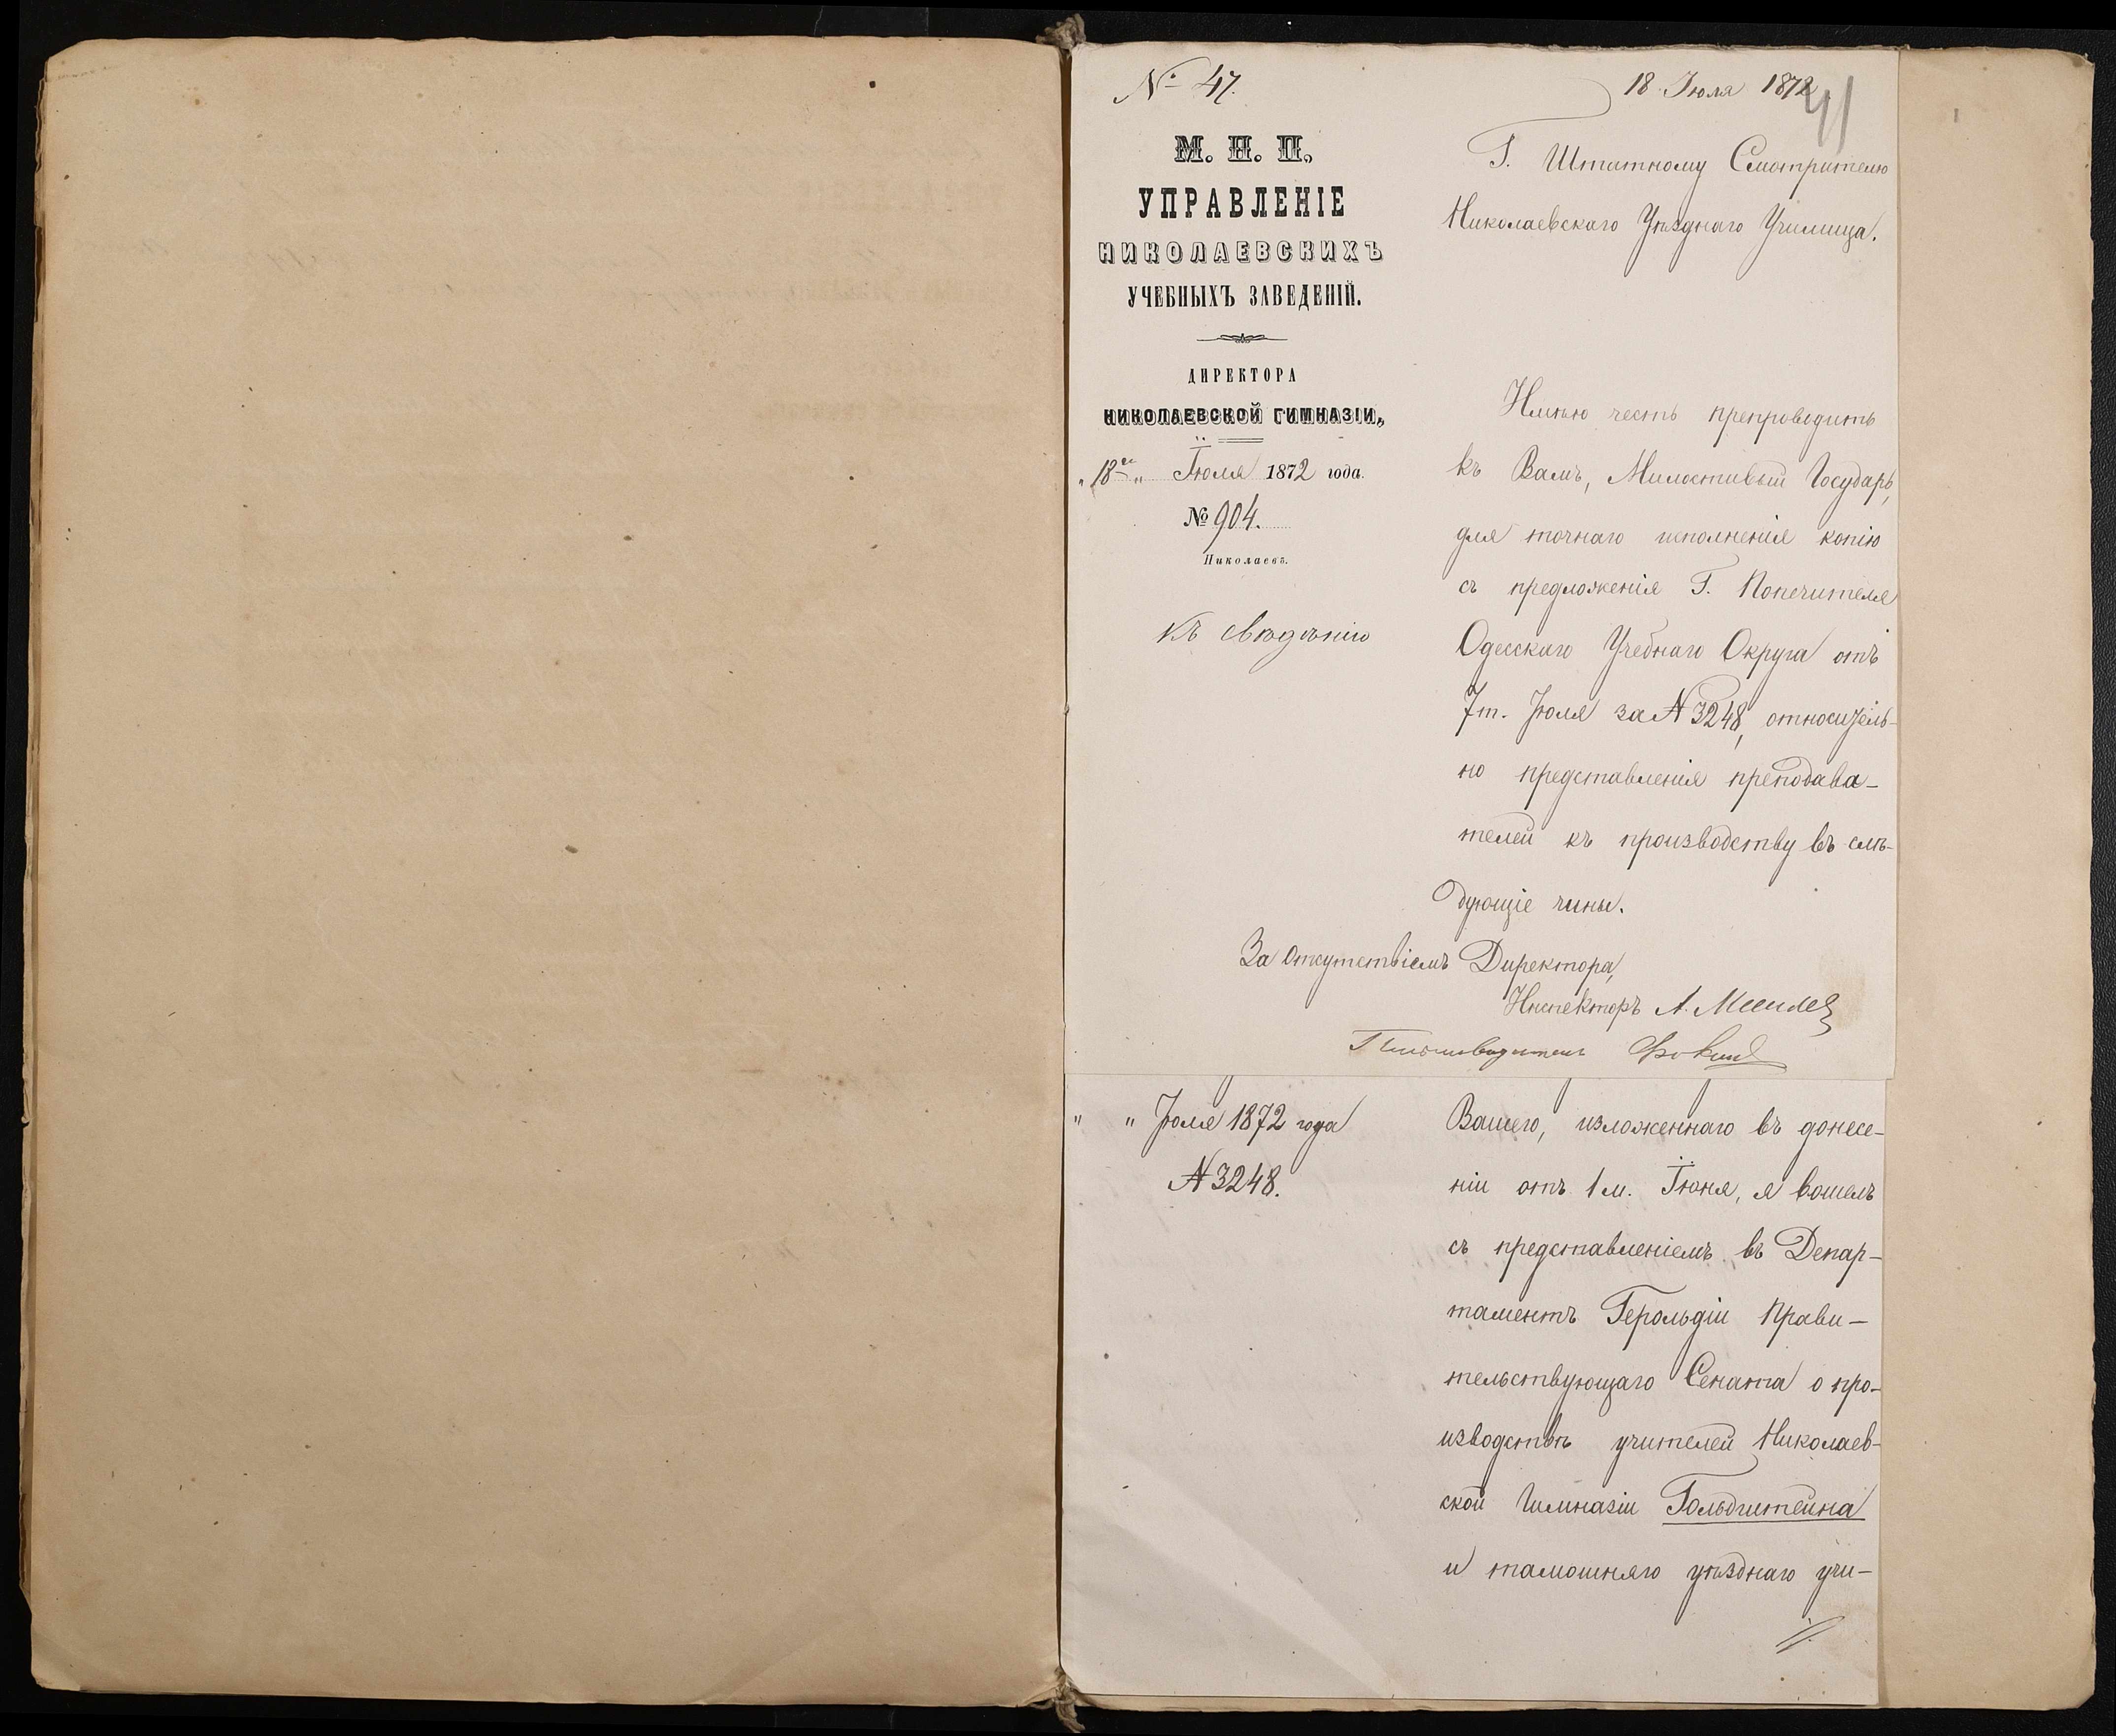 № 47.
18 Іюля 1872
41
М. Н. П.
УПРАВЛЕНІЕ
НИКОЛАЕВСКИХЪ
УЧЕБНЫХЪ ЗАВЕДЕНІЙ.
ДИРЕКТОРА
НИКОЛАЕВСКОЙ ГИМНАЗІИ,
„18го„ Іюля 1872 года.
№ 904.
Николаевъ.
Къ свѣдѣнію
Г. Штатному Смотрителю
Николаевскаго Уѣзднаго Училища.
Имѣю честь препроводить
къ Вамъ, Милостивый Государь,
для точнаго исполненія копію
съ предложенія Г. Попечителя
Одесскаго Учебнаго Округа отъ
7 т. Іюля за № 3248, относитель-
но представленія преподава-
телей къ производству въ слѣ-
дующіе чины.
За отсутствіемъ Директора,
Инспекторъ А.
Письмоводитель
„ „ Іюля 1872 года
№ 3248.
Вашего, изложеннаго въ донесе-
ніи отъ 1 м. Іюня, я вошелъ
съ представленіемъ въ Депар-
таментъ Герольдіи Прави-
тельствующаго Сената о про-
изводствѣ учителей Николаев-
ской Гимназіи Гольдштейна
и тамошняго уѣзднаго учи-